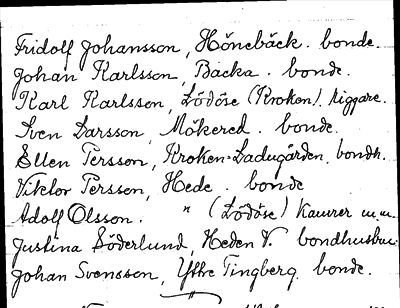 Fridolf Johansson, Hönebäck. bonde.
Johan Karlsson, Backa. bonde.
Karl Karlsson, Lödöse (Kroken). Riggare.
Sven Larsson, Mökered. bonde.
Ellen Persson, Kroken-Ladugården, bondh.
Viktor Persson, Hede. bonde
Adolf Olsson. " (Lödöse) Kamrer m.m.
Justina Söderlund, Heden V. bondhustru
Johan Svensson, Yttre Tingberg. bonde.